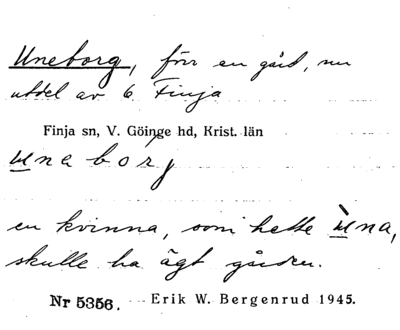 Uneborg, förr en gård, nu
utdel av 6 Finja
Finja sn, V. Göinge hd, Krist. län
u̲nabórj
en kvinna, som hette ù̲na,
skulle ha ägt gården.
Nr 5356. Erik W. Bergenrud 1945.